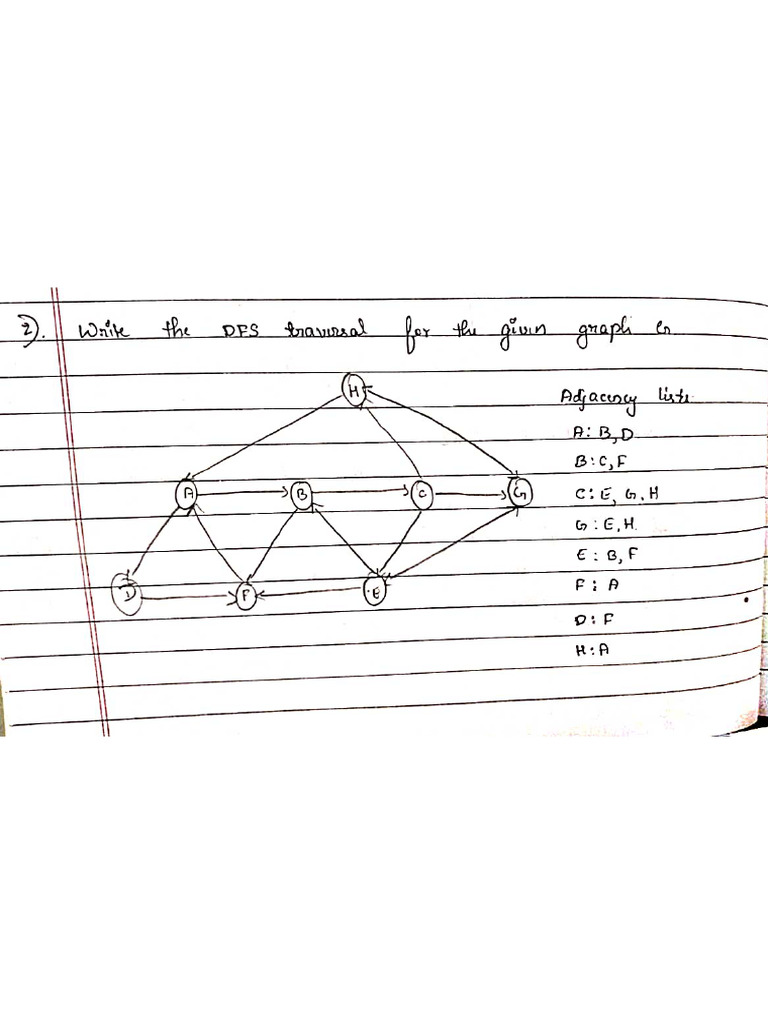 2). Write the DFS traversal for the given graph
H
Adjacency lists
A: B, D
B: C, F
A B C G
C: E, G, H
G: E, H
E: B, F
D F E
F: A
D: F
H: A